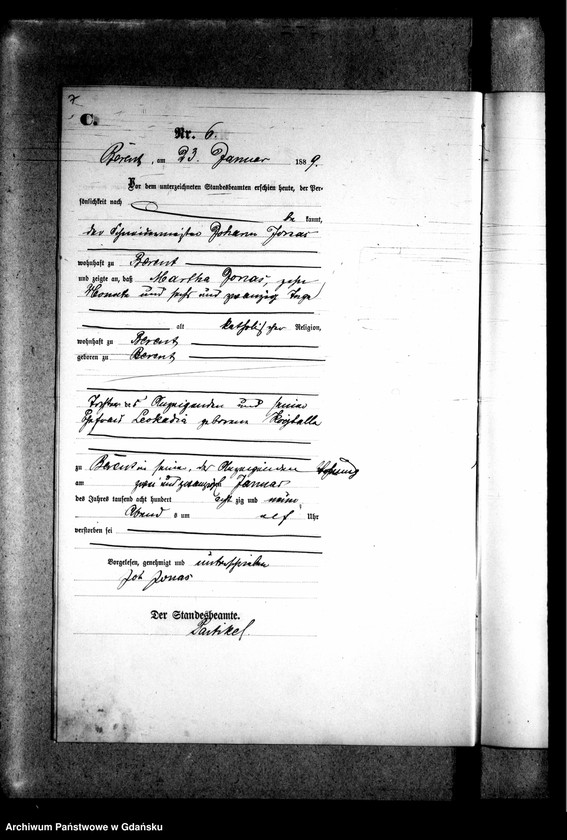 C.
Nr. 6.
Berent, am 23. Januar 1889.
Vor dem unterzeichneten Standesbeamten erschien heute, der Per-
sönlichkeit nach
be kannt,
der Schneidermeister Johann Jonas
wohnhaft zu Berent
und zeigte an, daß Martha Jonas, zehn
Monate und sechs und zwanzig Tage
alt katholischer Religion,
wohnhaft zu Berent
geboren zu Berent
Tochter des Anzeigenden und seiner
Ehefrau Leokadia geborenen
zu Berent in seiner, des Anzeigenden Wohnung
am zwei und zwanzigsten Januar
des Jahres tausend acht hundert acht zig und neun
Abend s um elf Uhr
verstorben sei
Vorgelesen, genehmigt und unterschrieben
Joh Jonas
Der Standesbeamte.
Partikel.
Archiwum Państwowe w Gdańsku